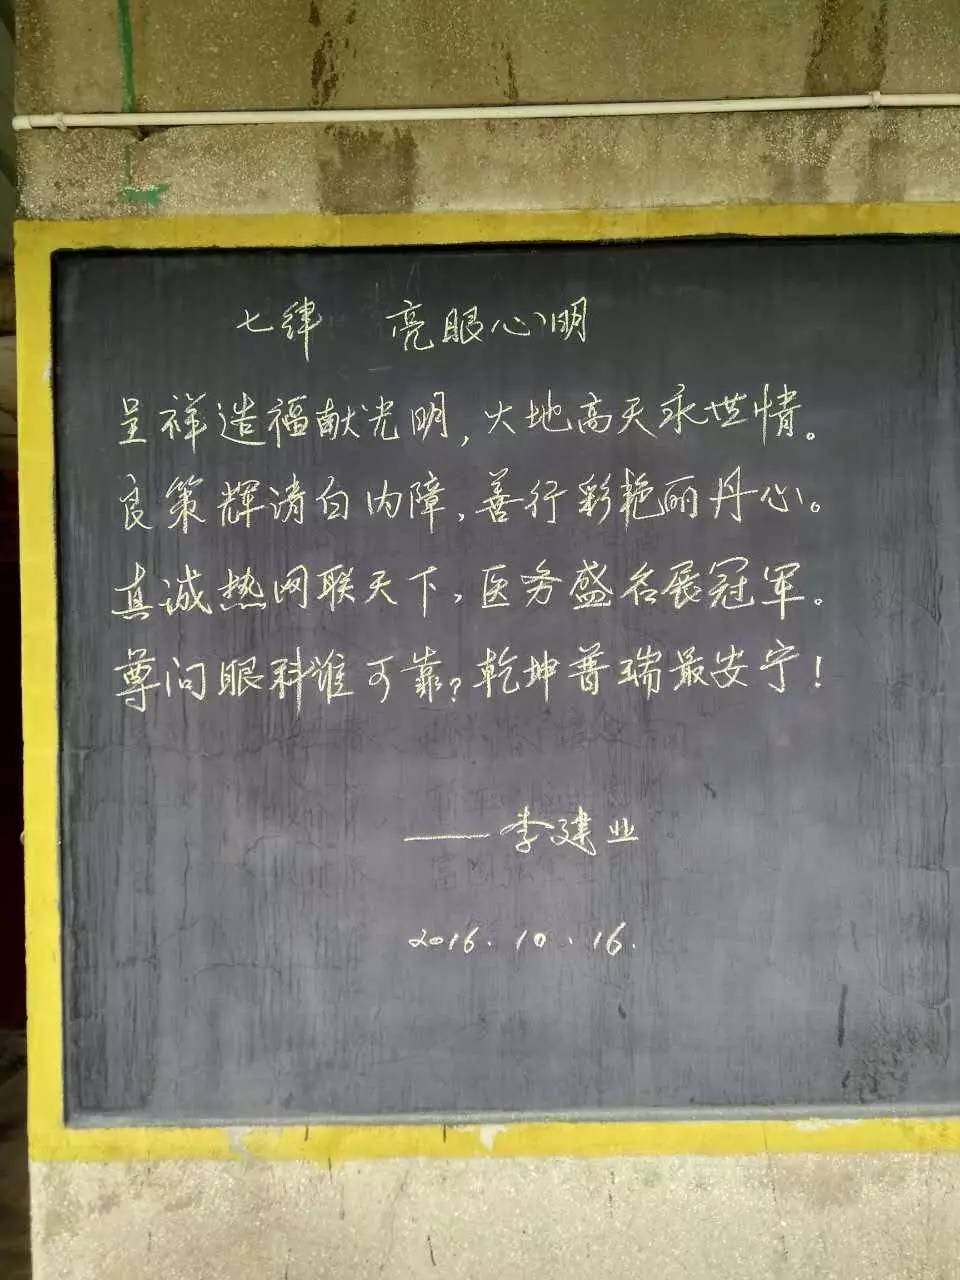 七律 亮眼心明
呈祥造福献光明,火地高天永世情。
良策辉清白内障,善行彩艳丽丹心。
真诚热网联天下,医务盛名展冠军。
尊问眼科谁可靠?乾坤普瑞最安宁!
——李建业
2016.10.16.